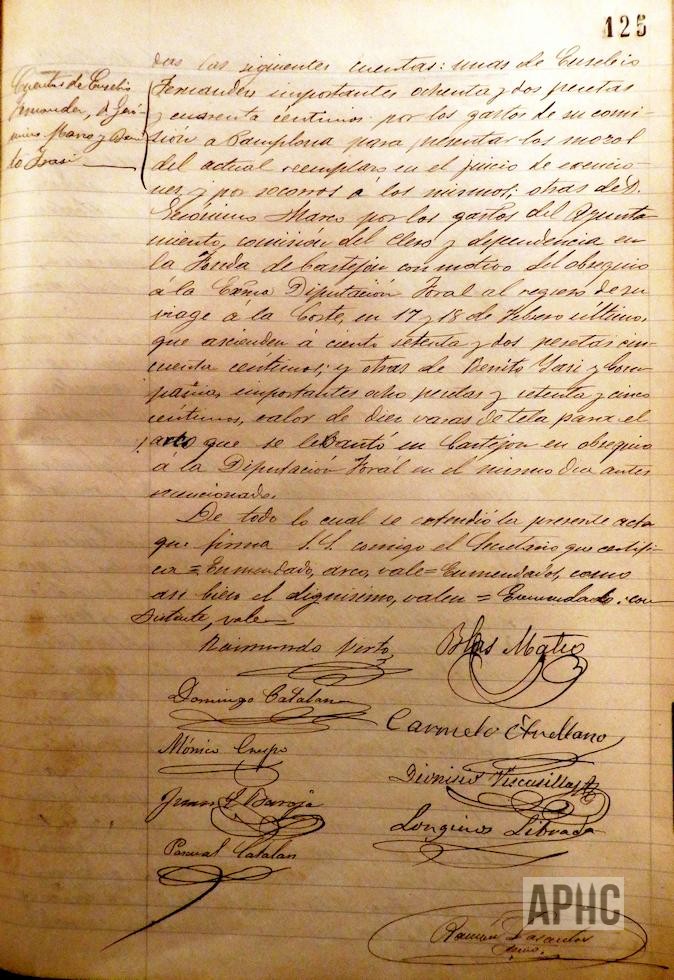 125
das las siguientes cuentas: unas de Eusebio
Cuentas de Eusebio
Fernandez, de Geró-
nimo Marco y Beni-
to
Fernandez importantes ochenta y dos pesetas
y cuarenta céntimos por los gastos de su comi-
sión a Pamplona para presentar los mozos
del actual reemplazo en el juicio de exencio-
nes, y por socorros á los mismos; otras de D.
Gerónimo Marco por los gastos del Ayunta-
miento, comisión del Clero y dependencia en
la Fonda de Castejón con motivo del obsequio
á la Exma Diputación Foral al regreso de su
viage á la Corte, en 17 y 18 de Febrero último,
que ascienden á ciento setenta y dos pesetas cin-
cuenta centimos; y otras de Benito y Com-
pañia, importantes ocho pesetas y setenta y cinco
céntimos, valor de diez varas de tela para el
arco que se lebantó en Castejon en obsequio
á la Diputación Forál en el mismo dia antes
mencionado.
De todo lo cual se extendió la presente acta
que firma S.S. comigo el Secretario que certifi-
ca = Enmendado, arco, vale = Enmendados, como
asi bien el dignisimo, valen = Enmendado: con
sistente, vale
Raimundo Virto
Blas Mateo
Domingo Catalan
Carmelo Arellano
Mónico Crespo
Dionisio Viscasillas
Juan S. Baroja
Longinos Librada
Pascual Catalan
APHC
Ramón